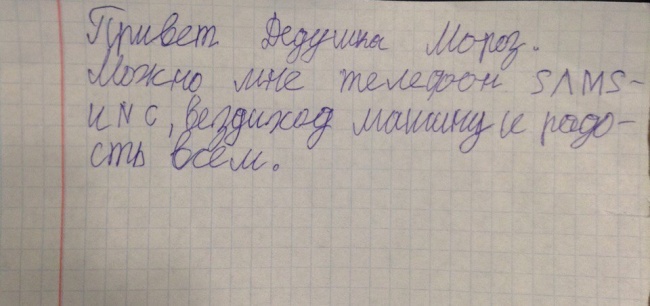 Привет Дедушка Мороз.
Можно мне телефон SΛMS-
ИNC, вездиход машину и радо-
сть всем.